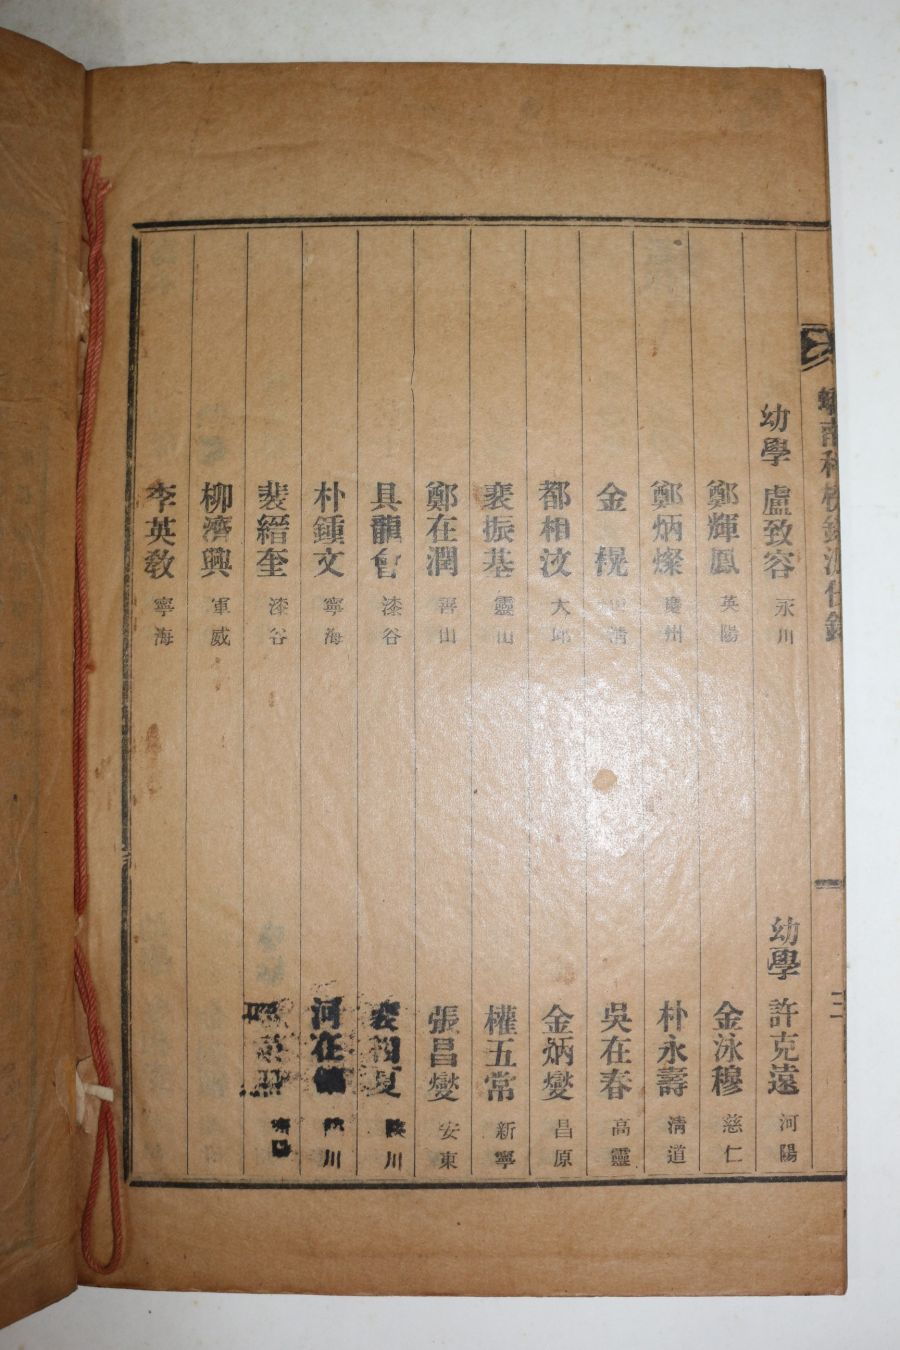 幼學 盧致容 永川
鄭輝鳳 英陽
鄭炳燦 慶州
金榥 清
都相汶 大邱
裵振基 靈山
鄭在潤 善山
具龍會 漆谷
朴鍾文 寧海
裴縉奎 漆谷
柳濟興 軍威
李英教 寧海
幼學 許克遠 河陽
金泳穆 慈仁
朴永壽 清道
吳在春 高靈
金炳燮 昌原
權五常 新寧
張昌燮 安東
夏 川
河在 川